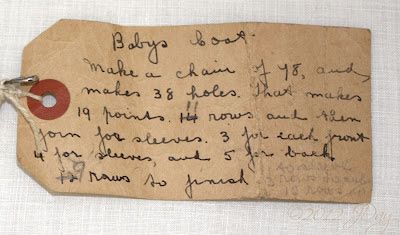 Babys Coat.
Make a chain of 98, and
makes 38 holes. That makes
19 points. 14 rows and then
join for sleeves. 3 for each front
4 for sleeves, and 5 for back
rows to finish
rows
© 2012 JDay